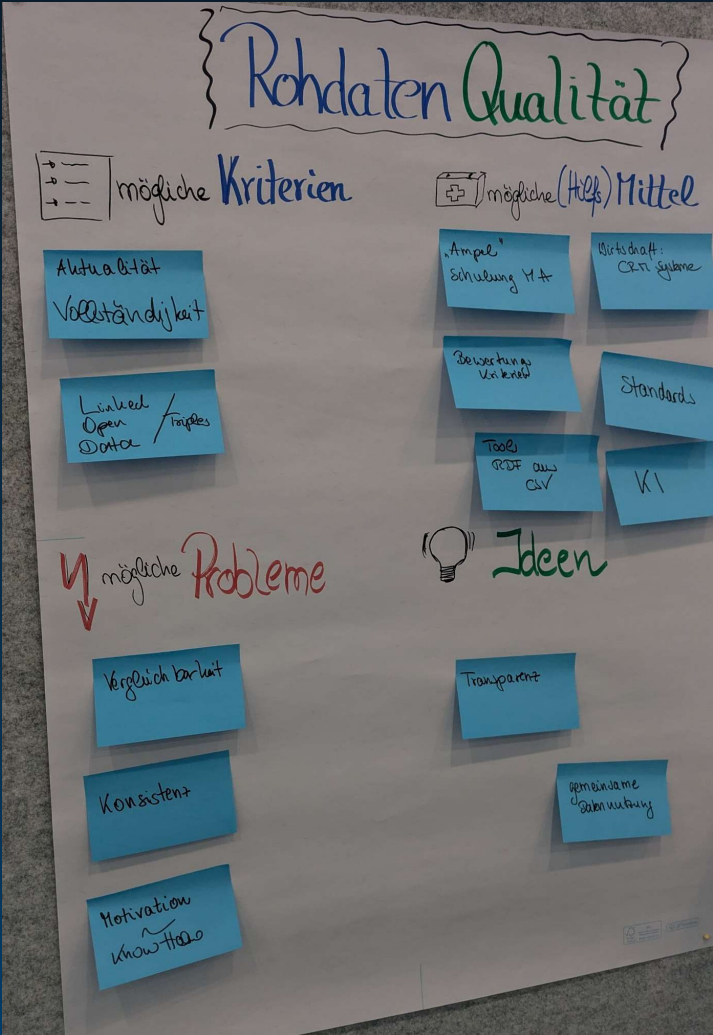 Rohdaten Qualität
mögliche Kriterien
Aktualität
Vollständigkeit
Linked
Open
Data / Triples
mögliche (Hilfs) Mittel
"Ampel"
Schulung MA
Wirtschaft:
CRM Systeme
Bewertungs
Kriterien
Standards
Tools
RDF aus
CSV
KI
mögliche Probleme
Vergleichbarkeit
Konsistenz
Motivation
~
Know How
Ideen
Transparenz
gemeinsame
Datennutzung